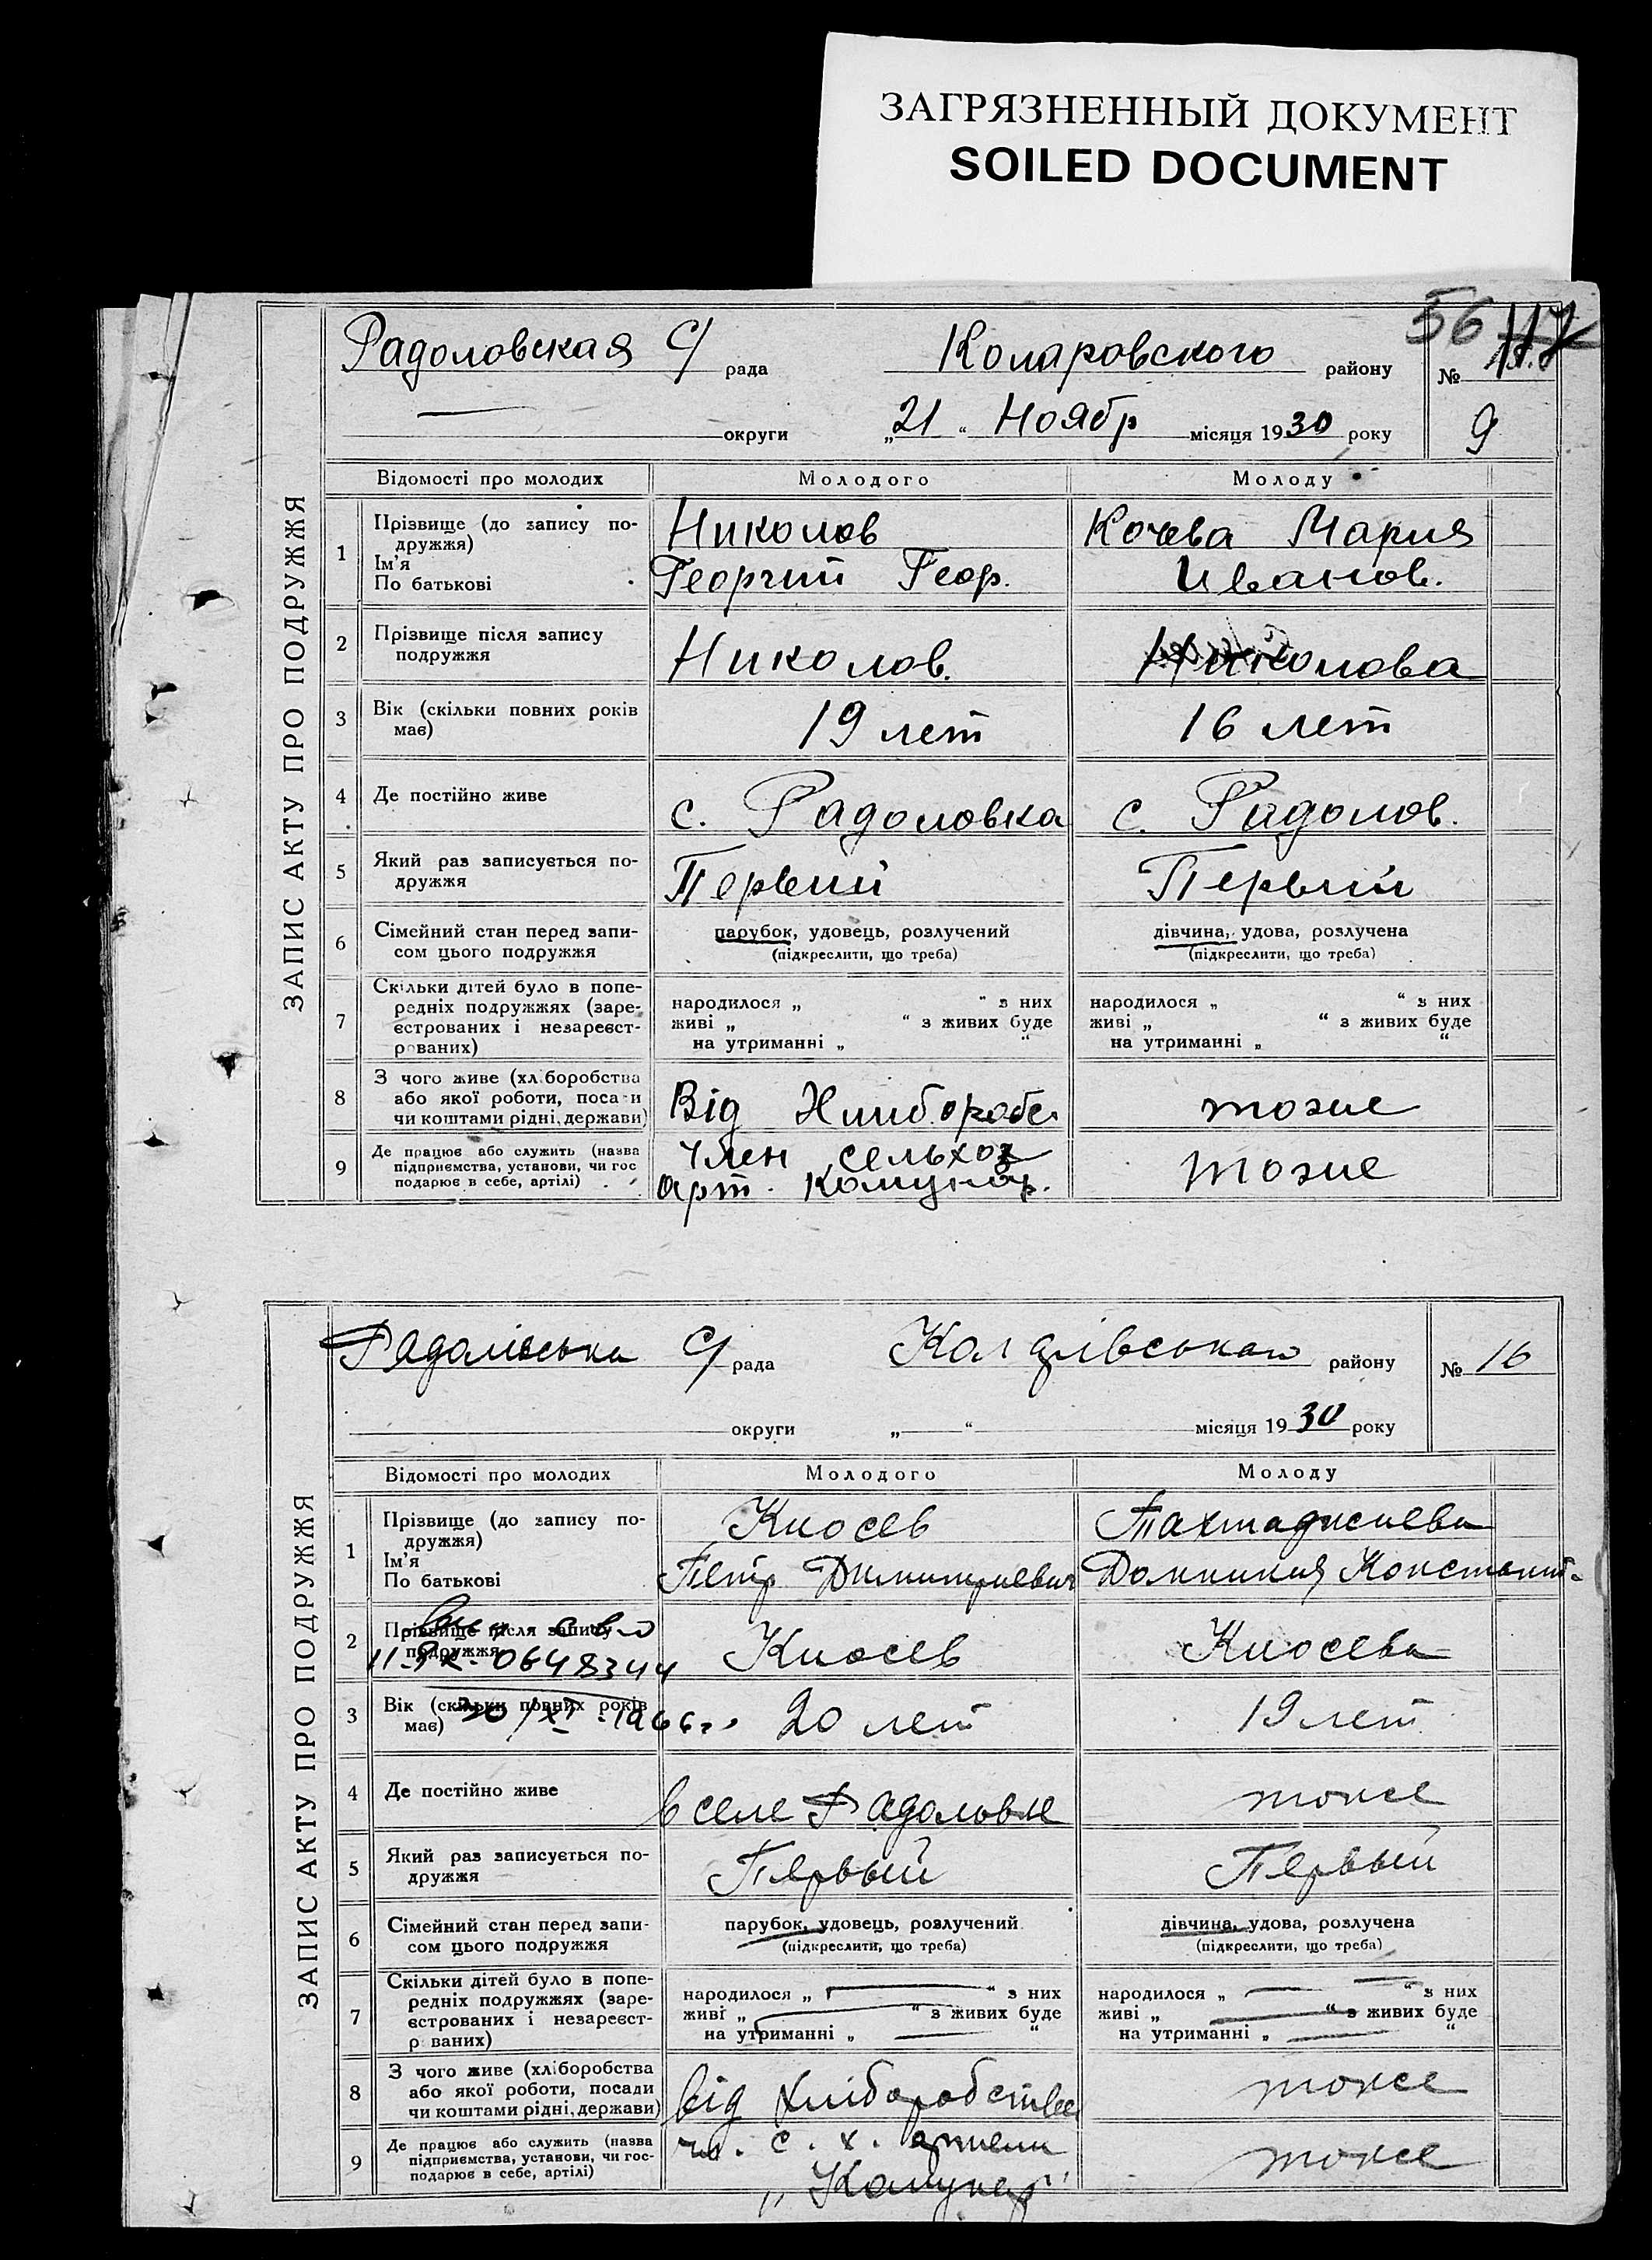 ЗАГРЯЗНЕННЫЙ ДОКУМЕНТ
SOILED DOCUMENT
56
Радоловская С/ рада Коларовского району №
округи „21“ Ноябр місяця 1930 року 9
ЗАПИС АКТУ ПРО ПОДРУЖЖЯ
Відомості про молодих Молодого Молоду
1 Прізвище (до запису по-
дружжя)
Ім'я
По батькові
Николов
Георгий Геор.
Кочева Мария
Иванов.
2 Прізвище після запису
подружжя
Николов.
Николова
3 Вік (скільки повних років
має)
19 лет
16 лет
4 Де постійно живе
с. Радоловка
с. Радолов.
5 Який раз записується по-
дружжя
Первий
Первий
6 Сімейний стан перед запи-
сом цього подружжя
парубок, удовець, розлучений
(підкреслити, що треба)
дівчина, удова, розлучена
(підкреслити, що треба)
7 Скільки дітей було в попе-
редніх подружжях (заре-
єстрованих і незареєст-
рованих)
народилося „ “ з них
живі „ “ з живих буде
на утриманні „ “
народилося „ “ з них
живі „ “ з живих буде
на утриманні „ “
8 З чого живе (хліборобства
або якої роботи, посади
чи коштами рідні, держави)
Від Хлибороб.
тоже
9 Де працює або служить (назва
підприємства, установи, чи гос
подарює в себе, артілі)
Член сельхоз
арт. Комунар.
тоже
Радолівська С/ рада району № 16
округи „ “ місяця 1930 року
ЗАПИС АКТУ ПРО ПОДРУЖЖЯ
Відомості про молодих Молодого Молоду
1 Прізвище (до запису по-
дружжя)
Ім'я
По батькові
Киосев
Петр Димитриевич
Тахтаджиева
Домникия Констант.
2 Прізвище після запису
подружжя
0648344
Киосев
Киосева
3 Вік (скільки повних років
має)
30/XI-1966 г.
20 лет
19 лет
4 Де постійно живе
в селе Радоловке
тоже
5 Який раз записується по-
дружжя
Первый
Первый
6 Сімейний стан перед запи-
сом цього подружжя
парубок, удовець, розлучений
(підкреслити, що треба)
дівчина, удова, розлучена
(підкреслити, що треба)
7 Скільки дітей було в попе-
редніх подружжях (заре-
єстрованих і незареєст-
р ваних)
народилося „ “ з них
живі „ “ з живих буде
на утриманні „ “
народилося „ “ з них
живі „ “ з живих буде
на утриманні „ “
8 З чого живе (хліборобства
або якої роботи, посади
чи коштами рідні, держави)
від Хліборобства
тоже
9 Де працює або служить (назва
підприємства, установи, чи гос-
подарює в себе, артілі)
чл. с. х. артели
„Комунар“
тоже